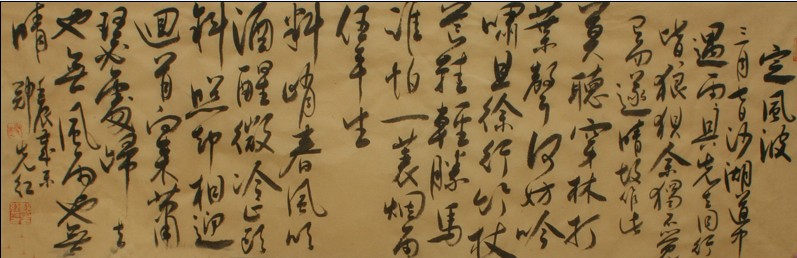 定風波
三月七日沙湖道中
遇雨具先去同行
皆狼狽余獨不覺
已而遂晴故作此
莫聽穿林打
葉聲何妨吟
嘯且徐行竹杖
芒鞋輕勝馬
誰怕一蓑烟雨
任平生
料峭春風吹
酒醒微冷山頭
斜照却相迎
回首向來蕭
瑟處歸去
也無風雨也無
晴
壬辰